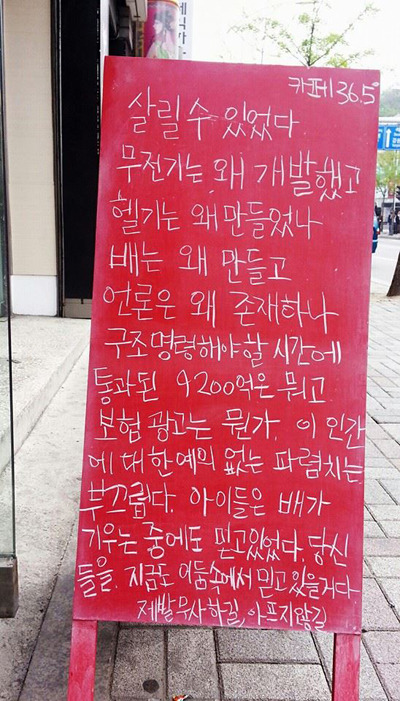 카페 36.5°
살릴 수 있었다
무전기는 왜 개발했고
헬기는 왜 만들었나
배는 왜 만들고
언론은 왜 존재하나
구조 명령해야 할 시간에
통과된 9200억은 뭐고
보험 광고는 뭔가. 이 인간
에 대한 예의 없는 파렴치는
부끄럽다. 아이들은 배가
기우는 중에도 믿고있었다. 당신
들을. 지금도 어둠속에서 믿고 있을거다
제발 무사하길, 아프지않길